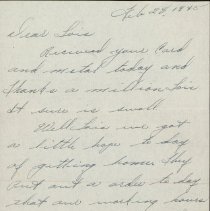 Feb 28, 1945
Dear Lois
Received your Card
and metal today and
thanks a million Lois
It sure is small
Well Lois we got
a little hope to day
of gitting home. they
put out a order to day
that our working hours